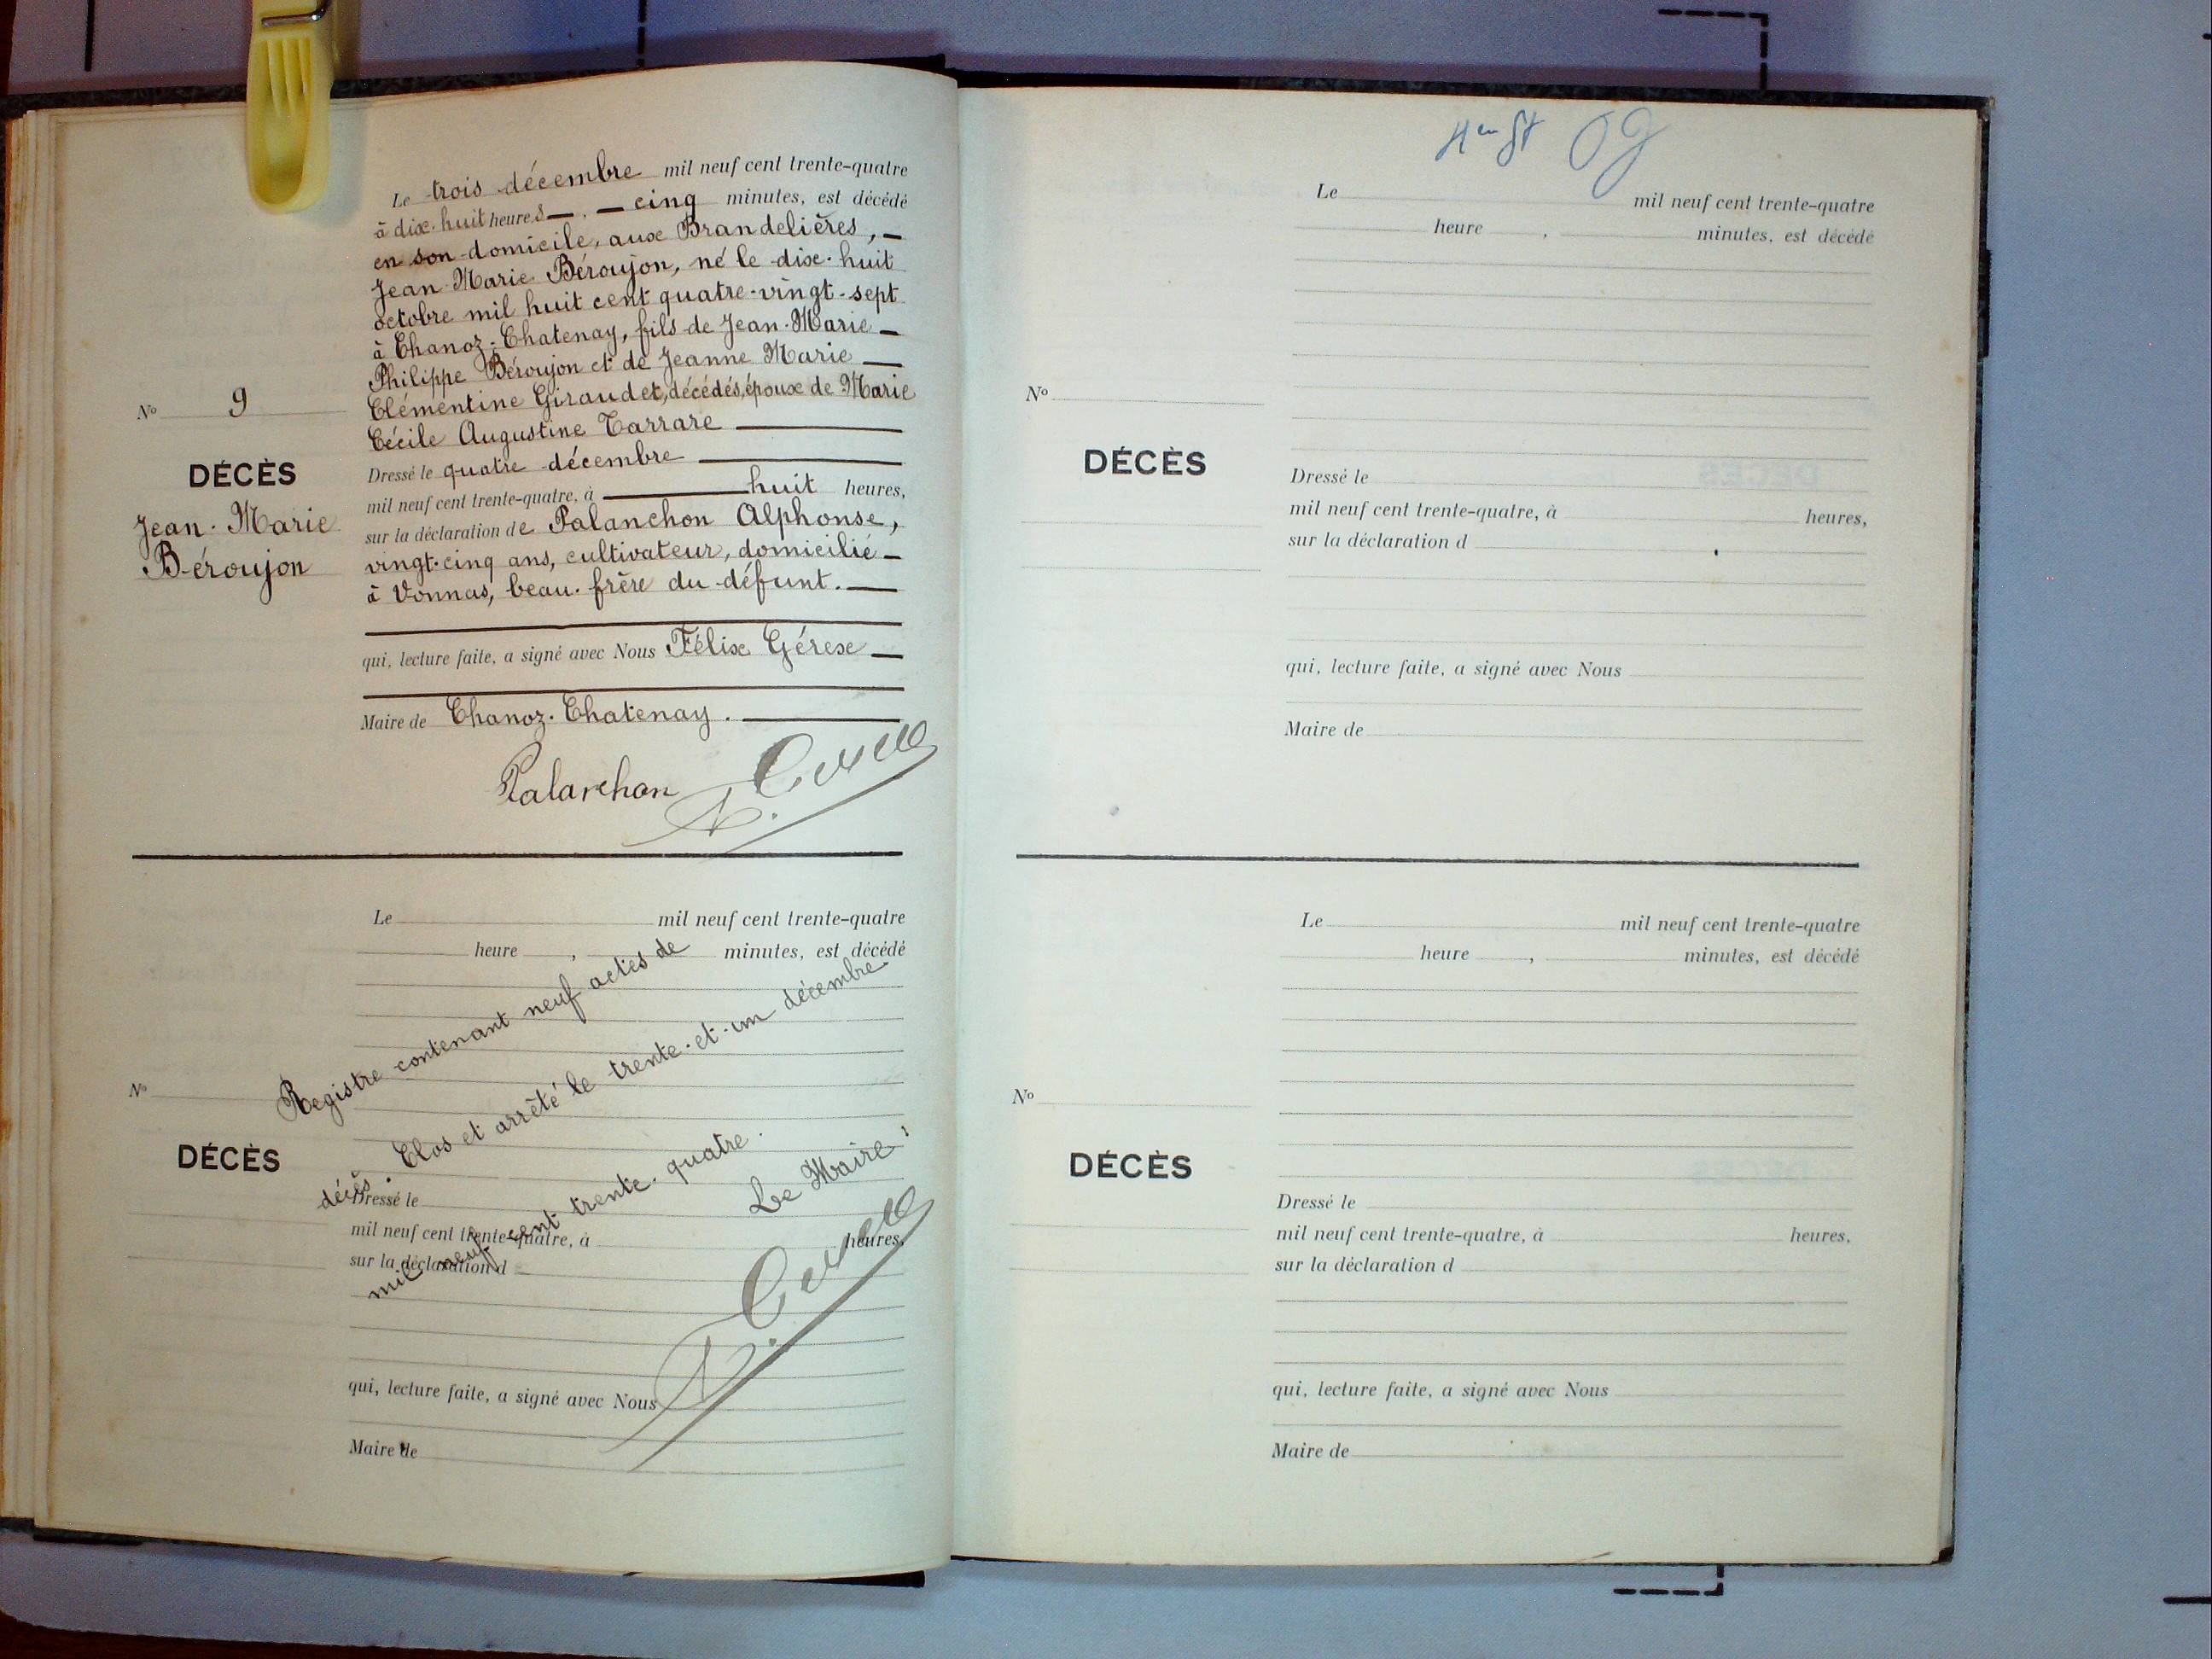 Le trois décembre mil neuf cent trente-quatre
à dix-huit heures — , — cinq minutes, est décédé
en son domicile, aux Brandelières, —
Jean-Marie Béroujon, né le dix-huit
octobre mil huit cent quatre-vingt-sept
à Chanoz-Chatenay, fils de Jean-Marie —
Philippe Béroujon et de Jeanne Marie —
Clémentine Giraudet, décédés, époux de Marie
Cécile Augustine Tarrare —
Dressé le quatre décembre —
mil neuf cent trente-quatre, à — huit heures,
sur la déclaration de Palanchon Alphonse,
vingt-cinq ans, cultivateur, domicilié —
à Vonnas, beau-frère du défunt. —
qui, lecture faite, a signé avec Nous Félix Gérex —
Maire de Chanoz-Chatenay. —
Palanchon
No 9
DÉCÈS
Jean-Marie
Béroujon
Le mil neuf cent trente-quatre
heure , minutes, est décédé
No
DÉCÈS
Dressé le
mil neuf cent trente-quatre, à heures,
sur la déclaration d
qui, lecture faite, a signé avec Nous
Maire de
Registre contenant neuf actes de
décès. Clos et arrêté le trente-et-un décembre
mil neuf cent trente-quatre.
Le Maire,
Le mil neuf cent trente-quatre
heure , minutes, est décédé
No
DÉCÈS
Dressé le
mil neuf cent trente-quatre, à heures,
sur la déclaration d
qui, lecture faite, a signé avec Nous
Maire de
Le mil neuf cent trente-quatre
heure , minutes, est décédé
No
DÉCÈS
Dressé le
mil neuf cent trente-quatre, à heures,
sur la déclaration d
qui, lecture faite, a signé avec Nous
Maire de